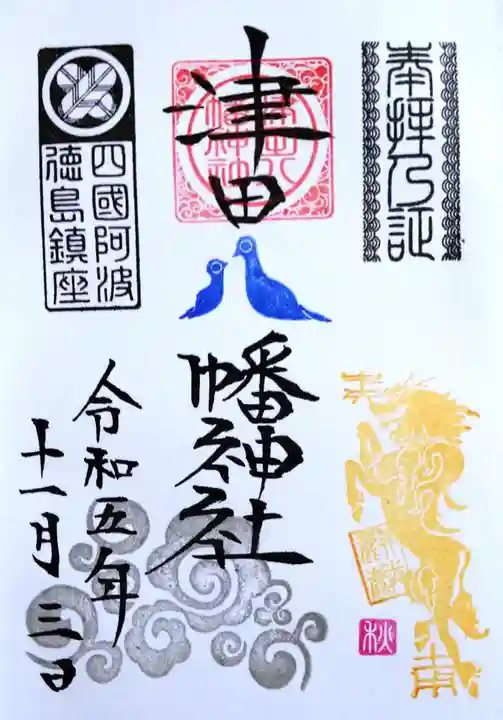 奉拝之証
津田
幡神社
四國阿波
徳島鎮座
令和五年
十一月三日
秋